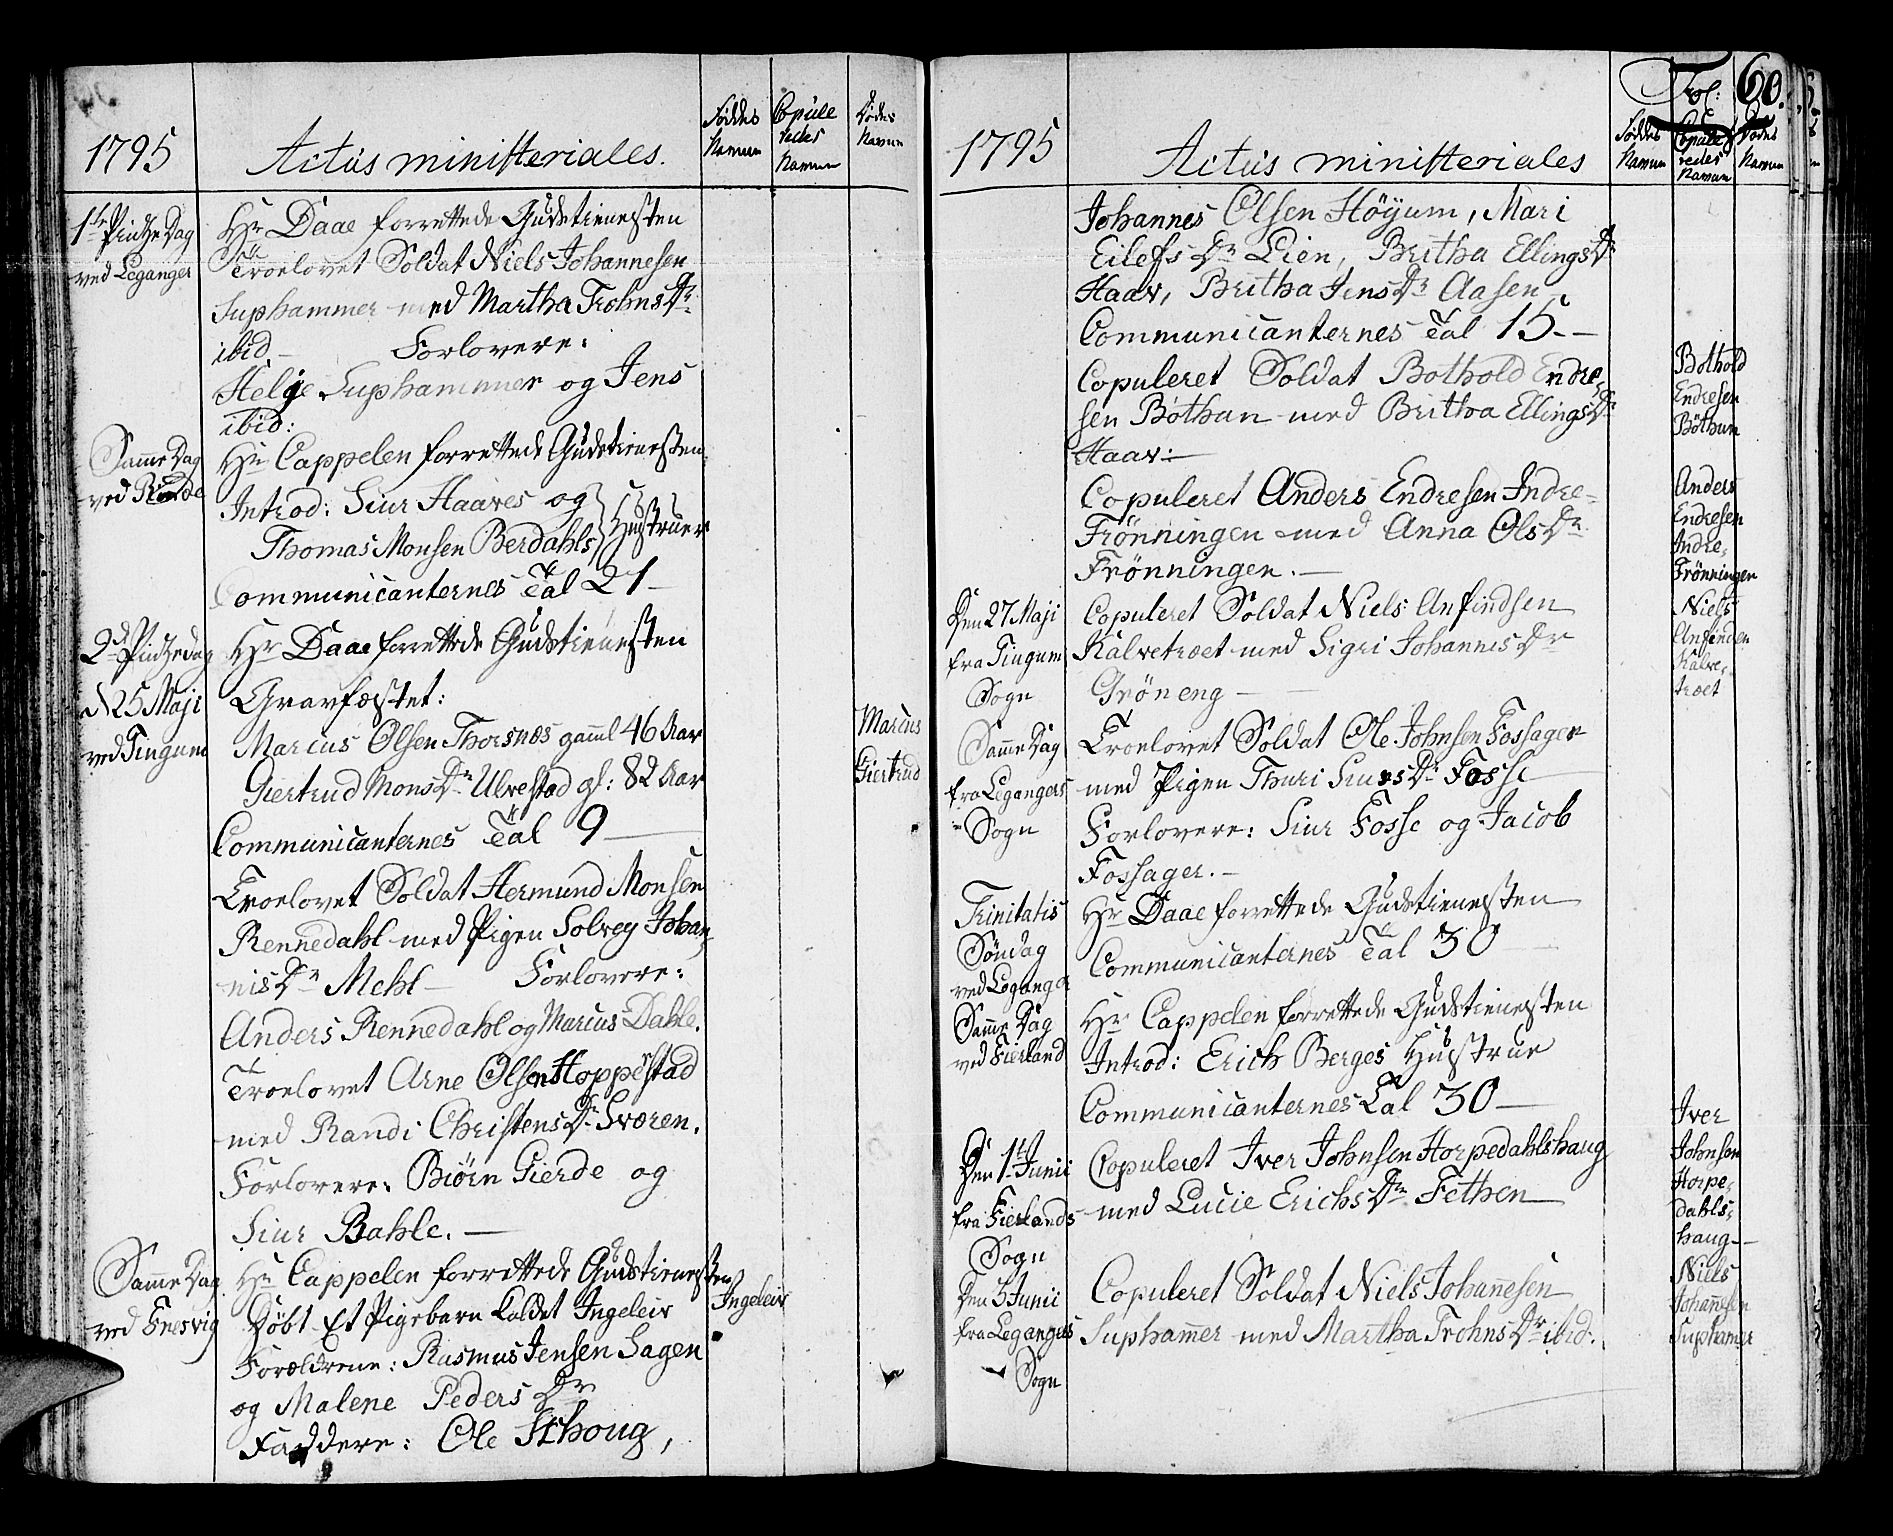 1795
Actus ministeriales.
Føddes Navne
Copule redes Navne
Dødes Navne
1ste Pintze Dag
ved Leganger
Hr Daae forrettede Gudstienesten
Troelovet Soldat Niels Johannesen
Suphammer med Martha Trohns Dr
ibid. – Forlovere:
Helje Suphammer og Jens
ibid:
Samme Dag
ved Rinde
Hr Cappelen forrettede Gudstienesten.
Introd: Siur Haaves og
Thomas Monsen Berdahls
Hustruer
Communicanternes Tal 21 –
2d Pintzedag
d 25 Maji
ved Tingum
Hr Daae forrettede Gudstienesten
Gravfæstet:
Marcus Olsen Thorsnæs gamml 46 Aar
Giertrud Mons Dr Ulvestad gl: 82 Aar
Marcus
Giertrud
Communicanternes Tal 9 –
Troelovet Soldat Hermund Monsen
Rennedahl med Pigen Solvey Johan-
nis Dr Mehl – Forlovere:
Anders Rennedahl og Marcus Dahle.
Troelovet Arne Olsen Hoppestad
med Randi Christens Dr Sværen.
Forlovere: Biørn Gierde og
Siur Bahle. –
Samme Dag
ved Fresvig
Hr Cappelen forrettede Gudstienesten
Døbt Et Pigebarn kaldet Ingeleiv
Ingeleiv
Forældrene: Rasmus Jensen Sagen
og Malene Peders Dr
Faddere: Ole Schoug,
Fol: 60.
1795
Actus ministeriales
Føddes Navne
Copule redes Navne
Dødes Navne
Johannes Olsen Höyum, Mari
Eilefs Dr Lien, Britha Ellings Dr
Haav, Britha Jens Dr Aasen
Communicanternes Tal 15. –
Copuleret Soldat Bothold Endre-
sen Böthun med Britha Ellings Dr
Haav: –
Bothold
Endresen
Böthun
Copuleret Anders Endresen Indre-
Frönningen med Anna Ols Dr
Frönningen. –
Anders
Endresen
Indre-
Frönningen
Den 27 Maji
fra Tingum
Sogn
Copuleret Soldat Niels Anfindsen
Kalvetræet med Sigri Johannis Dr
Gröneng –
Niels
Anfinden
Kalve-
træet
Samme Dag
fra Legangers
Sogn
Troelovet Soldat Ole Johnsen Fossager
med Pigen Thuri Siurs Dr Fosse
Forlovere: Siur Fosse og Jacob
Fossager. –
Trinitatis
Söndag
ved Leganger
Hr Daae forrettede Gudstienesten
Communicanternes Tal 30 –
Samme Dag
ved Fierland
Hr Cappelen forrettede Gudstienesten
Introd: Erich Berges Hustrue
Communicanternes Tal 30 –
Den 1ste Junii
fra Fierlands
Sogn
Copuleret Iver Johnsen Horpedahlshaug
med Lucie Erichs Dr Fethen –
Iver
Johnsen
Horpe-
dahls-
haug –
Den 5 Junii
fra Legangers
Sogn
Copuleret Soldat Niels Johannesen
Suphammer med Martha Trohns Dr ibid:
Niels
Johannesen
Suphamer